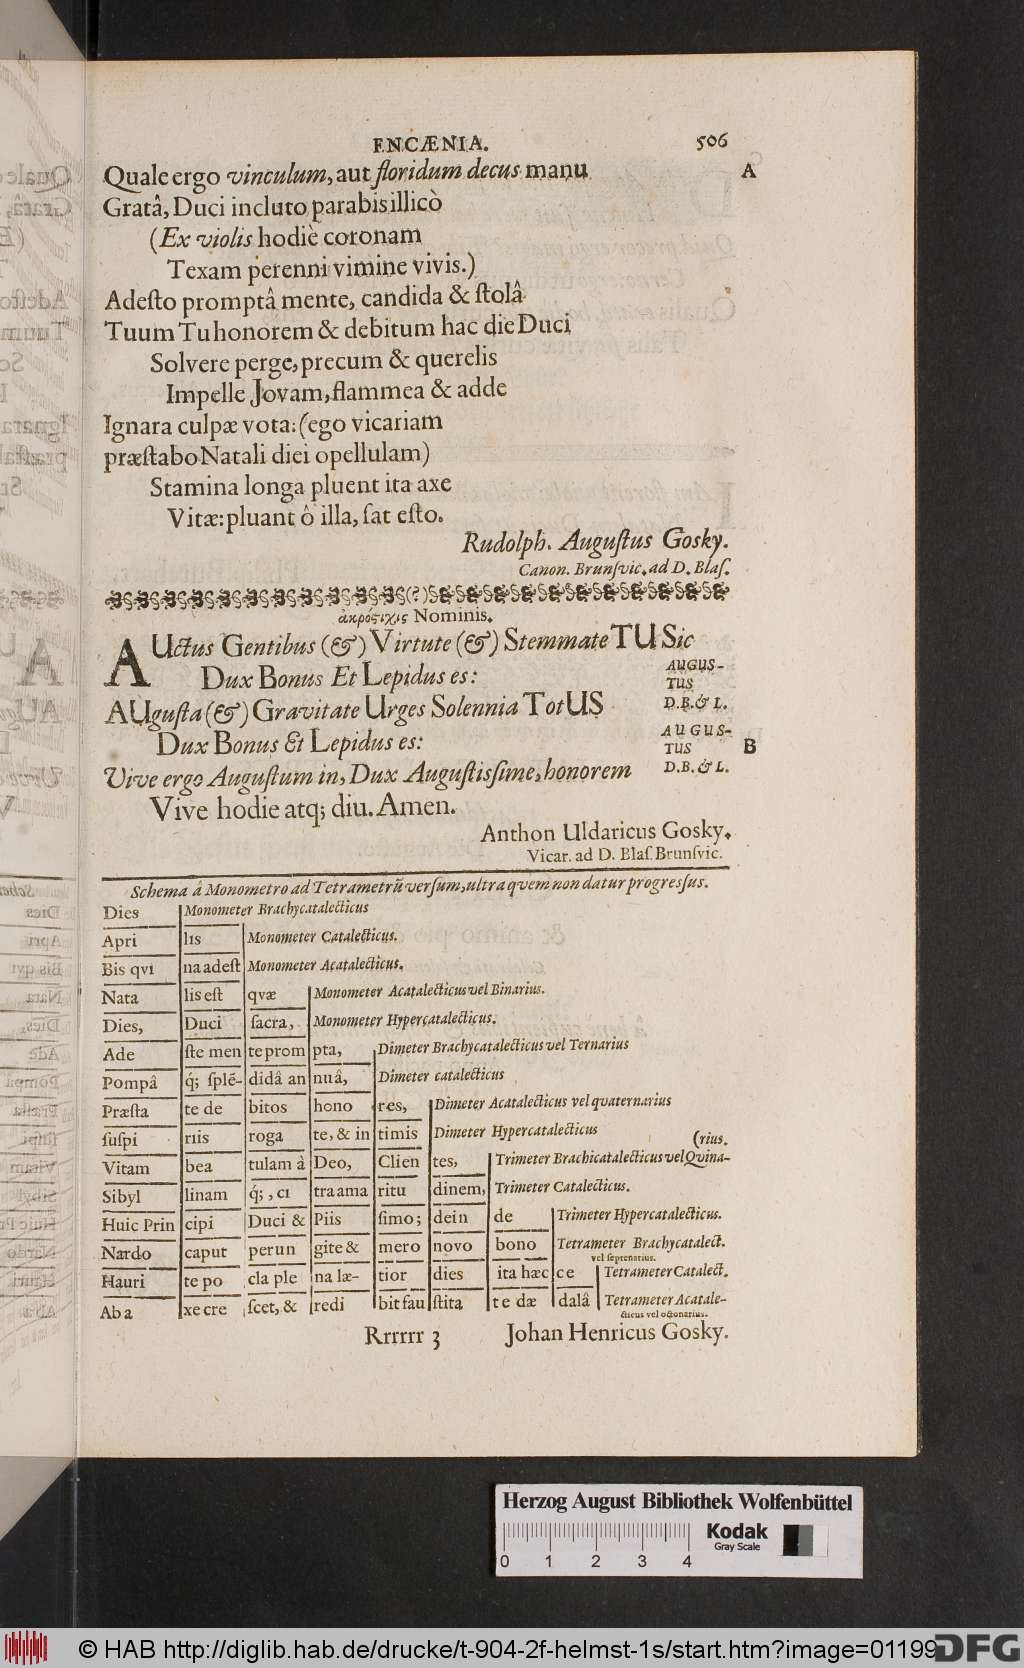 ENCÆNIA. 506
Quale ergo vinculum, aut floridum decus manu A
Gratâ, Duci incluto parabis illicò
(Ex violis hodiè coronam
Texam perenni vimine vivis.)
Adeſto promptâ mente, candida & ſtolâ
Tuum Tu honorem & debitum hac die Duci
Solvere perge, precum & querelis
Impelle Jovam, flammea & adde
Ignara culpæ vota: (ego vicariam
præſtabo Natali diei opellulam)
Stamina longa pluent ita axe
Vitæ: pluant ô illa, ſat eſto.
Rudolph. Auguſtus Gosky.
Canon. Brunſvic. ad D. Blaſ.
(?)
ἀκρόςιχις Nominis.
AUctus Gentibus (&) Virtute (&) Stemmate TU Sic
Dux Bonus Et Lepidus es: AUGUS-
TUS
AUguſta (&) Gravitate Urges Solennia TotUS D. B. & L.
Dux Bonus Et Lepidus es: AUGUS-
TUS B
Vive ergo Auguſtum in, Dux Auguſtisſime, honorem D. B. & L.
Vive hodie atq; diu. Amen.
Anthon Uldaricus Gosky.
Vicar. ad D. Blaſ. Brunſvic.
Schema á Monometro ad Tetrametrũ verſum, ultra qvem non datur progresſus.
Dies Monometer Brachycatalecticus
Apri lis Monometer Catalecticus.
Bis qvi na adeſt Monometer Acatalecticus.
Nata lis eſt qvæ Monometer Acatalecticus vel Binarius.
Dies, Duci ſacra, Monometer Hypercatalecticus.
Ade ſte men te prom pta, Dimeter Brachycatalecticus vel Ternarius
Pompâ q́; ſplẽ- didâ an nuâ, Dimeter catalecticus
Præſta te de bitos hono res, Dimeter Acatalecticus vel qvaternarius
ſuſpi riis roga te, & in timis Dimeter Hypercatalecticus (rius.
Vitam bea tulam à Deo, Clien tes, Trimeter Brachicatalecticus vel Qvina-
Sibyl linam q́;, ci tra ama ritu dinem, Trimeter Catalecticus.
Huic Prin cipi Duci & Piis ſimo; dein de Trimeter Hypercatalecticus.
Nardo caput perun gite & mero novo bono Tetrameter Brachycatalect.
vel ſeptenarius.
Hauri te po cla ple na læ- tior dies ita hæc ce Tetrameter Catalect.
Ab a xe cre ſcet, & redi bit fau ſtita te dæ dalâ Tetrameter Acatale-
cticus vel octonarius.
Rrrrrr 3 Johan Henricus Gosky.
Herzog August Bibliothek Wolfenbüttel
Kodak
Gray Scale
0 1 2 3 4
© HAB http://diglib.hab.de/drucke/t-904-2f-helmst-1s/start.htm?image=01199
DFG